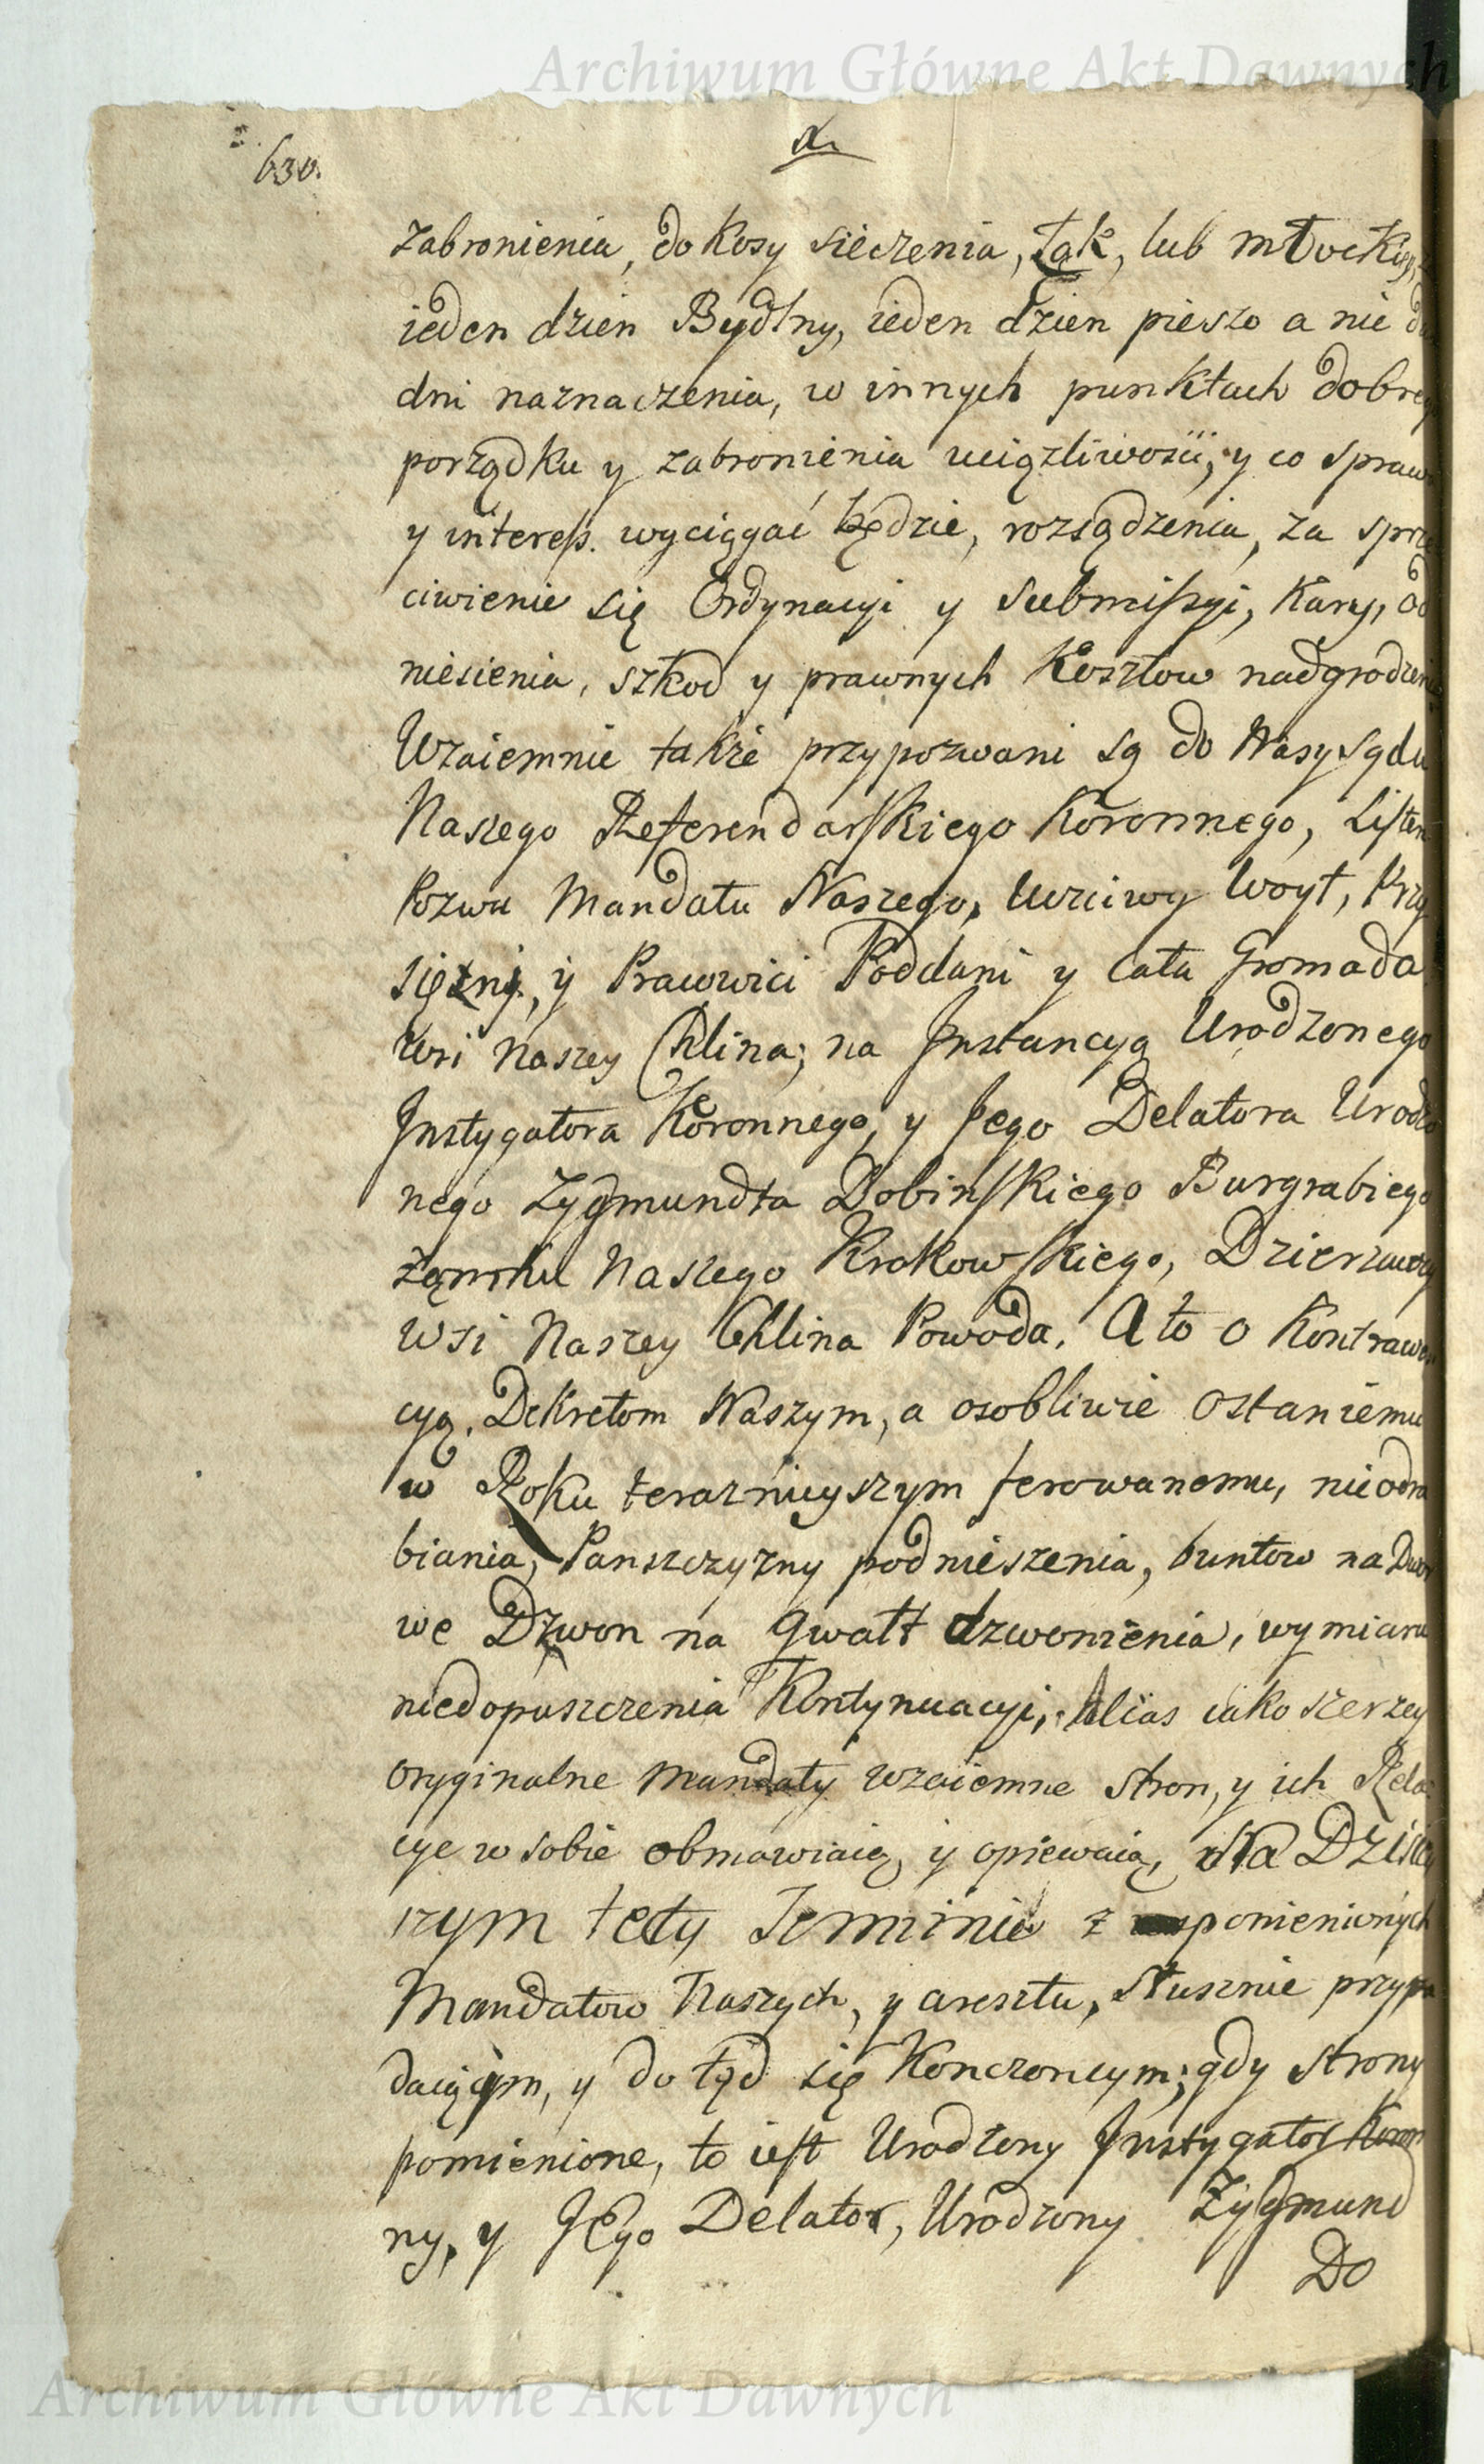 Archiwum Główne Akt Dawnych
630.
zabronienia, do Kosy sieczenia, łąk, lub młocki
ieden dzien Bydlny, ieden dzien pieszo a nie
dni naznaczenia, w innych punktach dobre
porządku y zabronienia uciązliwosci, y co spraw
y interess. wyciągać będzie, rozsądzenia, za sprze
ciwienie się Ordynacyi y submissyi, Kary, od
niesienia, szkod y prawnych Kosztow nadgrodzeni
Wzaiemnie także przypozwani są do Nasz Sądu
Naszego Referendarskiego Koronnego, Listem
Pozwu Mandatu Naszego, Uczciwy Woyt, Przy
siężni, y Pracowici Poddani y cała Gromada
Wsi Naszey Chlina; na Instancyą Urodzonego
Instygatora Koronnego, y Jego Delatora Urodzo
nego Zygmundta Dobinskiego Burgrabiego
Zamku Naszego Krakowskiego, Dzierzawcy
Wsi Naszey Chlina Powoda. A to o Kontrawen
cyą, Dekretom Naszym, a osobliwie ostaniemu
w Roku teraznieyszym ferowanemu, nieodra
biania, Panszczyzny podnieszenia, buntow na Dwor
we Dzwon na gwałt dzwonienia, wymiaru
niedopuszczenia Kontynuacyi, Alias iako szerzey
oryginalne Mandaty wzaiemne stron, y ich Rela
cye w sobie obmawiaią, y opiewaią, Na Dzisiey
szym tedy Terminie z wspomienionych
Mandatow Naszych, y aresztu, słusznie przypa
daiącym, y do tąd się Konczoncym; gdy strony
pomienione, to iest Urodzony Instygator Koron
ny, y Jego Delator, Urodzony Zygmund
Do
Archiwum Główne Akt Dawnych